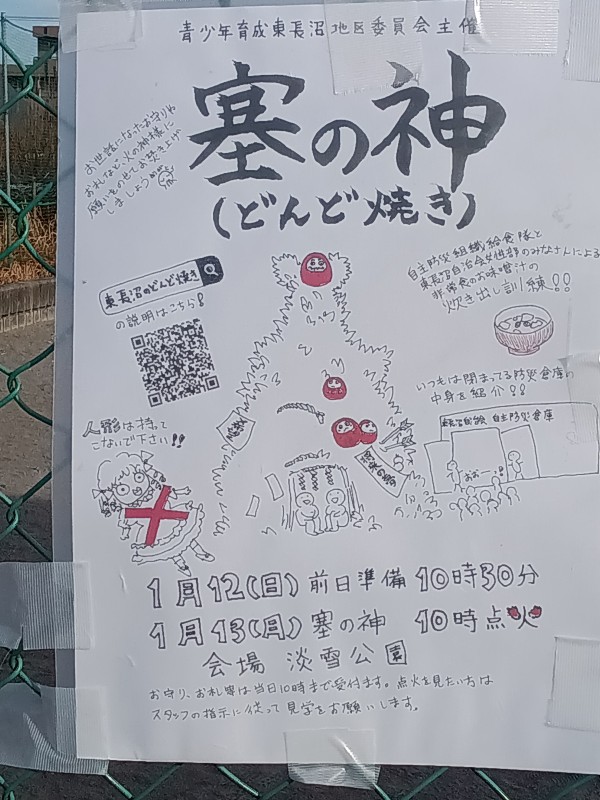 青少年育成東長沼地区委員会主催
塞の神
(どんど焼き)
お世話になったお守りや
お札など、火の神様に
願いをのせてお焚き上げ
しましょう
東長沼のどんど焼き
の説明はこちら!
自主防災組織給食隊と
東長沼自治会女性部のみなさんによる
非常食のお味噌汁の
炊き出し訓練!!
いつもは閉まってる防災倉庫の
中身を紹介!!
自主防災倉庫
おおー
人形は持って
こないで下さい!!
1月12(日) 前日準備 10時30分
1月13(月) 塞の神 10時点火
会場 淡雪公園
お守り、お札等は当日10時まで受付ます。点火を見たい方は
スタッフの指示に従って見学をお願いします。